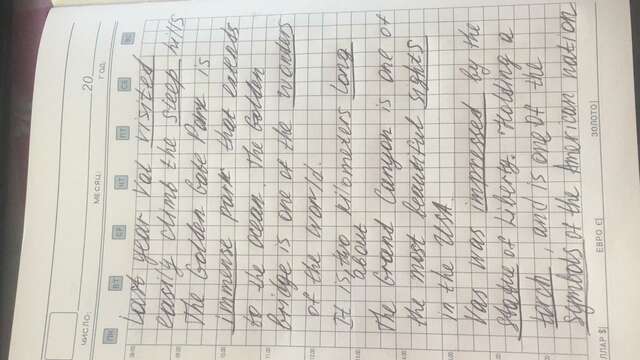 ЧИСЛО:
МЕСЯЦ:
20
ГОД:
ПН
ВТ
СР
ЧТ
ПТ
СБ
ВС
Last year Val visited
easily climb the steep hills
The Golden Gate Park is
immense park that extends
to the ocean. The Golden
bridge is one of the wonders
of the world.
It is two kilometers long
about
The Grand Canyon is one of
the most beautiful sights
in the USA.
Val was impressed by the
Statue of Liberty. Holding a
torch, and is one of the
symbols of the American nation
09.00
10.00
11.00
12.00
ЛЛАР $|
ЕВРО €|
ЗОЛОТО|